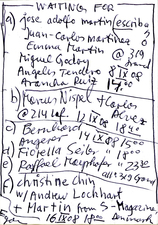 WAITING FOR
a) jose adolfo martin/escriba
Juan-Carlos martinez
Emma Martin
Miguel Godoy @ 319
Angeles Tendero 8 IX 08
Arancha Ruiz 1400
b) Marcus Nispel + Carlos
@ 214 12 IX 08 1840
c) Bernhard
Angerer 14 IX 08 1500
d) Fiorella Seiler " 1800
e) Raffael Mayrhofer " 2230
all @ 319 Grand
f) christine chin
w/ Andrew Lockhart
+ Martin from S-Magazine
16 IX 08 1800 Denmark